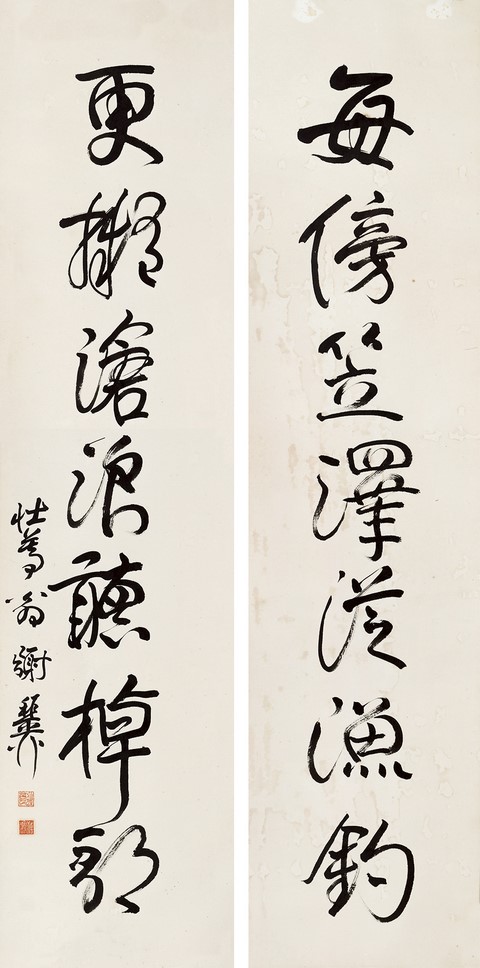 每傍笠澤從漁釣
更擬滄浪聽棹歌
壯暮翁謝稚柳